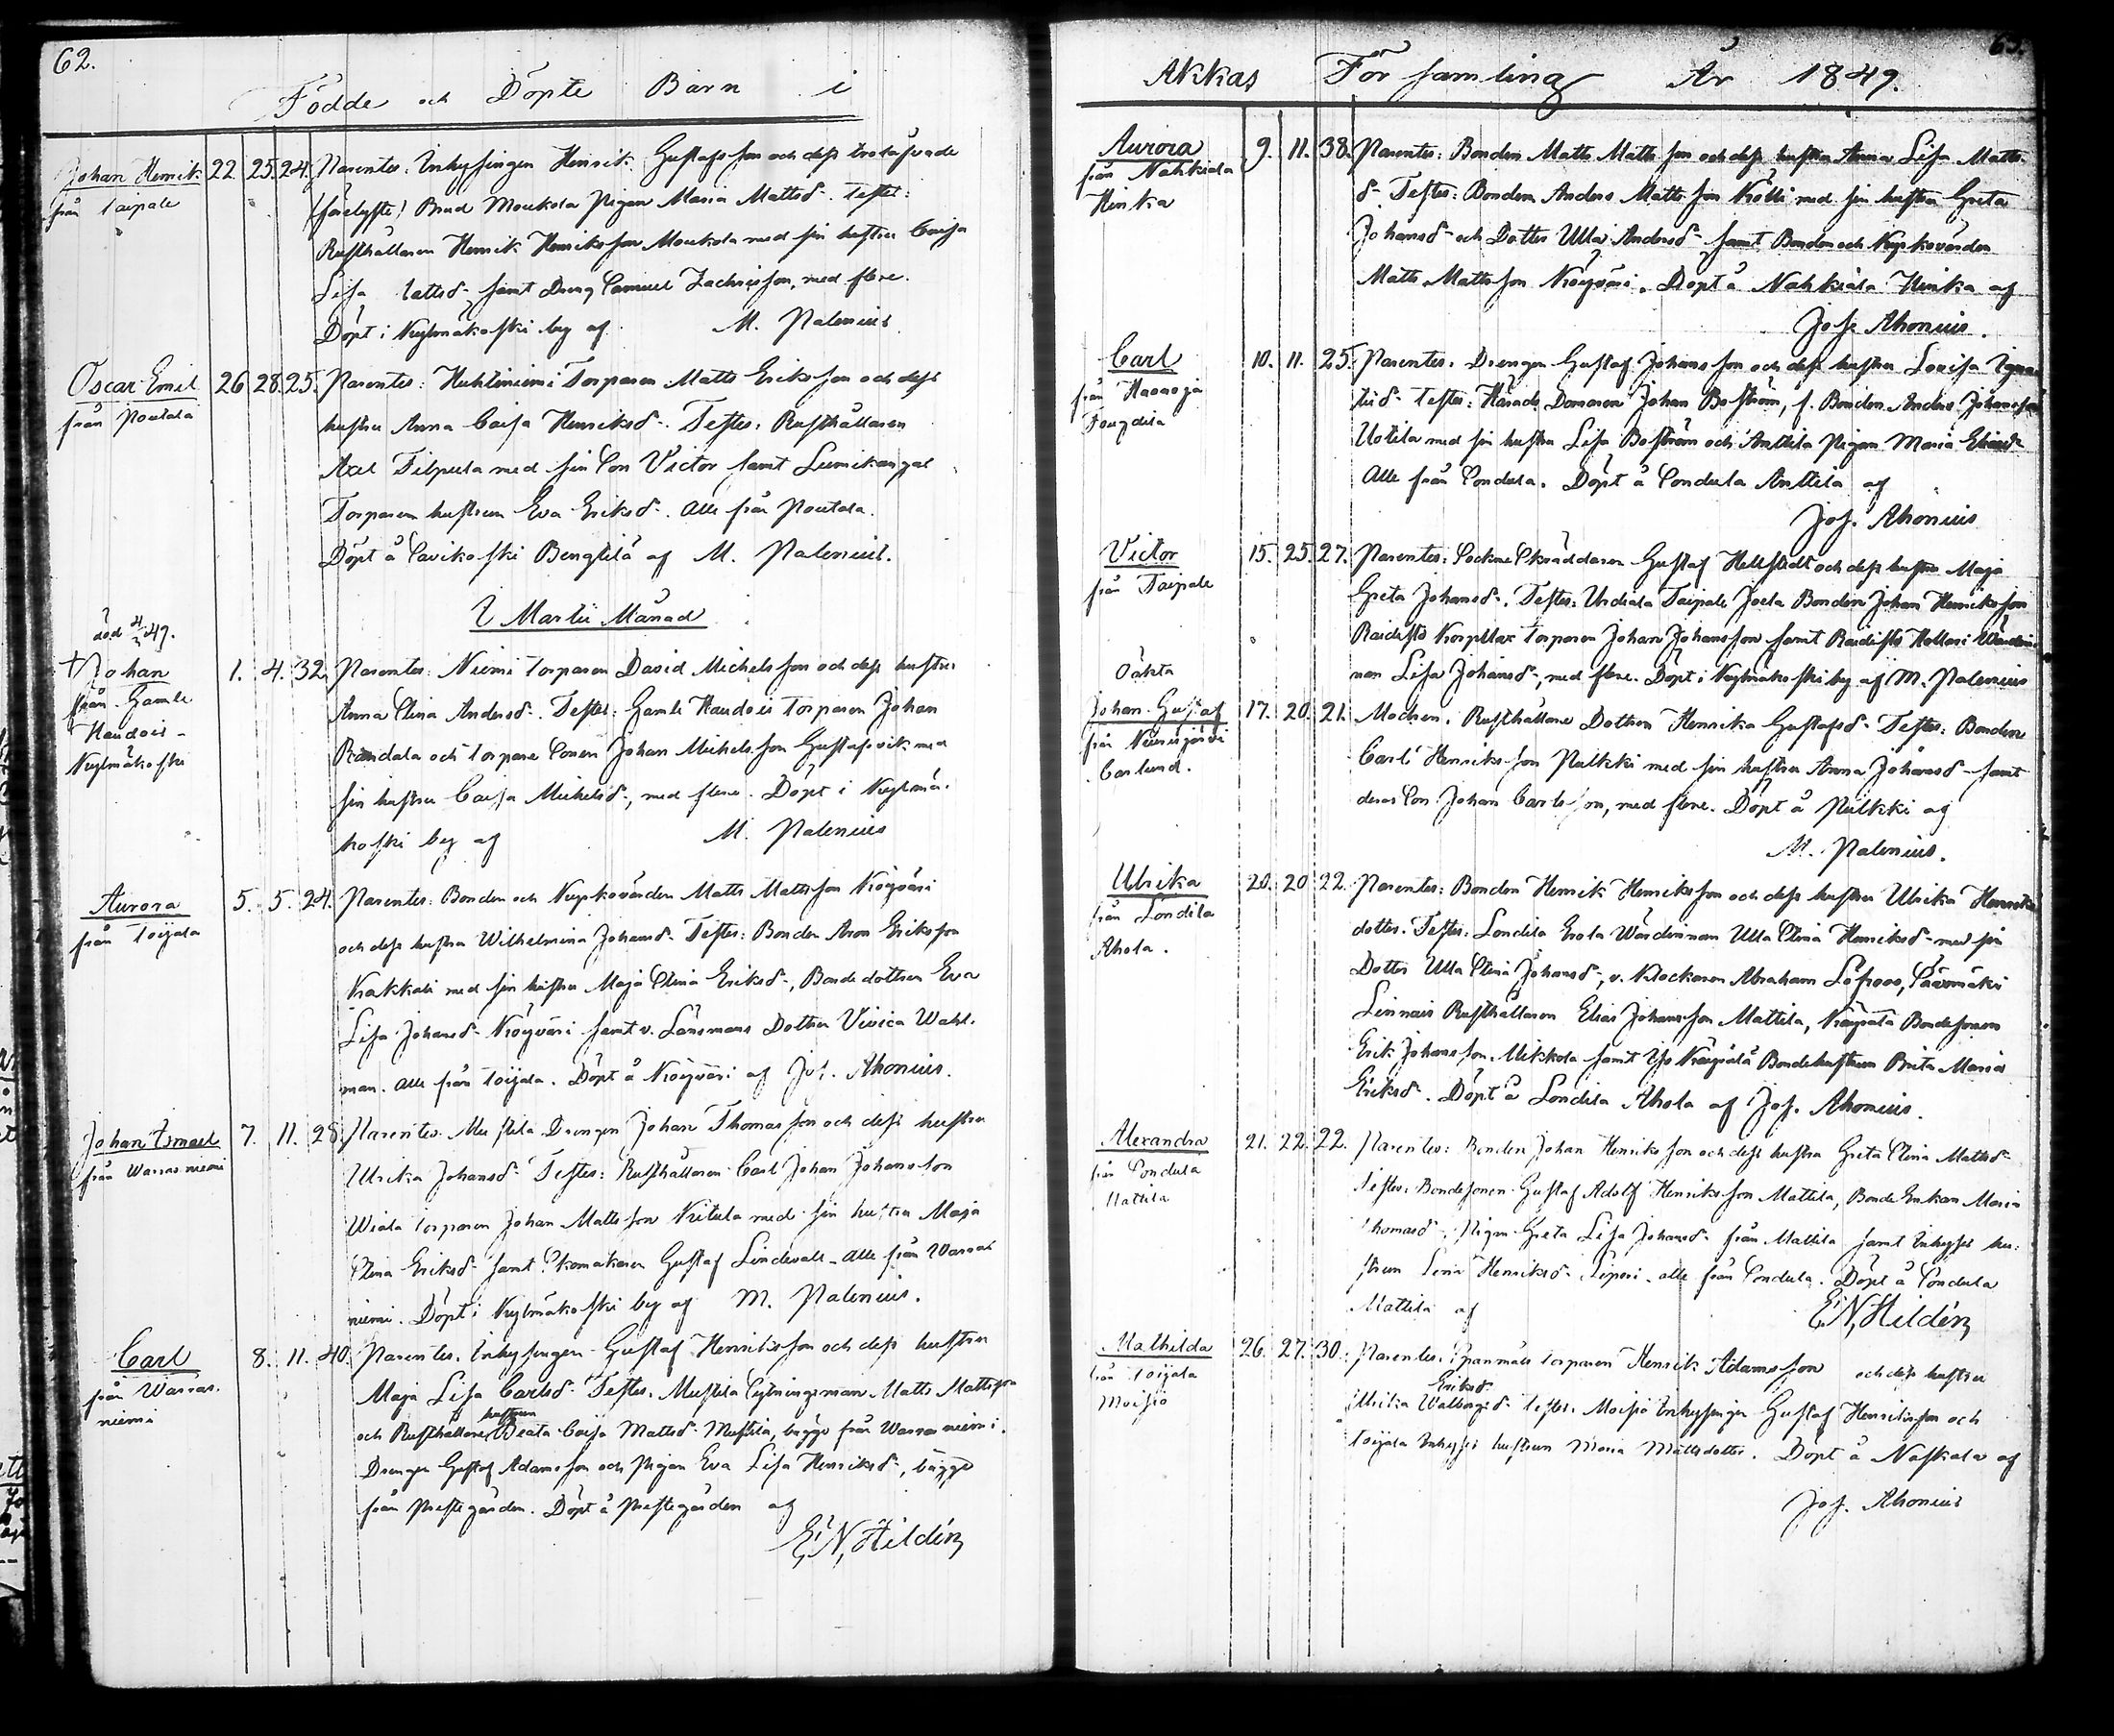 62.
Födde och Döpte Barn i
Johan Henrik 22. 25. 24. Parentes: Inhysingen Henrik Gustafsson och dess trolofvade
från Taipale (förelyfte) Brud Moukola Pigan Maria Mattsd:r Testes:
Rusthållaren Henrik Henriksson Moukola med sin hustru Caisa
Lisa Mattsd:r samt Dräng Samuel Zachrisson, med flere.
Döpt i Kylmäkoski by af M. Palenius.
Oscar Emil 26 28. 25. Parentes: Huhtiniemi Torparen Matts Eriksson och dess
från Pontala hustru Anna Caisa Henriksd:r. Testes: Rusthållaren
Axel Filpula med sin Son Victor samt Lumikangas
Torpare hustrun Eva Eriksd:r. alle från Pontala.
Döpt å Savikoski Bengtilä af M. Palenius.
I Martii Månad
död 4/4 49.
† Johan 1. 4. 32. Parentes: Niemi Torparen David Michelsson och dess hustru
från Gamle Anna Stina Andersd:r. Testes: Gamle Haudois Torparen Johan
Haudois- Randala och Torpare Sonen Johan Michelsson Gustafsvik med
Kylmäkoski sin hustru Caisa Michelsd:r, med flere. Döpt i Kylmä-
koski by af M. Palenius
Aurora 5. 5. 24. Parentes: Bonden och Kyrkovärden Matts Mattsson Köyväri
från Toijala och dess hustru Wilhelmina Johansd:r Testes: Bonden Aron Eriksson
Kakkari med sin hustru Maja Stina Eriksd:r, Bonde dottren Eva
Lisa Johansd:r Köyväri samt v. Länsmans Dottren Vivica Wahl-
man. alle från Toijala. Döpt å Köyväri af Jos. Ahonius.
Johan Ismael 7. 11. 28. Parentes: Mustila Drängen Johan Thomasson och dess hustru
från Warrasniemi Ulrika Johansd:r Testes: Rusthållaren Carl Johan Johansson
Wiala Torparen Johan Mattsson Kitula med sin hustru Maja
Stina Eriksd:r samt Skomakaren Gustaf Lindevall, alle från Warras-
niemi. Döpt i Kylmäkoski by af M. Palenius.
Carl 8. 11. 40. Parentes: Inhysingen Gustaf Henriksson och dess hustru
från Warras- Maja Lisa Carlsd:r Testes: Mustila Sytningsman Matts Mattsson
niemi och Rusthållare hustrun Beata Caisa Mattsd:r Mustila, bägge från Warrasniemi.
Drängen Gustaf Adamsson och Pigan Eva Lisa Henriksd:r, bägge
från Prestegården. Döpt å Prestegården af
E. N. Hildén
63.
Akkas Församling År 1849.
Aurora 9. 11. 38. Parentes: Bonden Matts Mattsson och dess hustru Anna Lisa Matts-
från Nahkiala d:r Testes: Bonden Anders Mattsson Kölli med sin hustru Greta
Hinka Johansd:r och Dotter Ulla Andersd:r samt Bonden och Kyrkovärden
Matts Mattsson Köyväri. Döpt å Nahkiala Hinka af
Jos. Ahonius.
Carl 10. 11. 25. Parentes: Drängen Gustaf Johansson och dess hustru Lovisa
från Haaroja Testes: Härads Domaren Johan Boström, f. Bonden Anders Johansson
Fougdila Uotila med sin hustru Lisa Boström och Anttila Pigan Maria
Alle från Sondula. Döpt å Sondula Anttila af
Jos. Ahonius
Victor 15. 25. 27. Parentes: Sockne Skräddaren Gustaf Hellstedt och dess hustru Maja
från Taipale Greta Johansd:r. Testes: Urdiala Taipale Joela Bonden Johan Henriksson
Torparen Johan Johansson samt
Oäkta nan Lisa Johansd:r, med flere. Döpt i Kylmäkoski by af M. Palenius
Johan Gustaf 17. 20. 21. Modren: Rusthållare Dottren Henrika Gustafsd:r Testes: Bonden
från Carl Henriksson Pulkki med sin hustru Anna Johansd:r samt
Carlund. deras Son Johan Carlsson, med flere. Döpt å Pulkki af
M. Palenius.
Ulrika 20. 20 22. Parentes: Bonden Henrik Henriksson och dess hustru Ulrika Henriks
från Sondila dotter. Testes: Sondila Erola Wärdinnan Ulla Stina Henriksd:r med sin
Ahola. Dotter Ulla Stina Johansd:r, v. Klockaren Abraham Löfroos, Säämäki
Linnais Rusthållaren Elias Johansson Mattila, Bondesonen
Erik Johansson Mikkola samt Bondehustrun Brita Maria
Eriksd:r. Döpt å Sondila Ahola af Jos. Ahonius.
Alexandra 21. 22. 22. Parentes: Bonden Johan Henriksson och dess hustru Greta Stina Mattsd:r
från Sondula Testes: Bondesonen Gustaf Adolf Henriksson Mattila, Bonde Enkan Maria
Mattila Thomasd:r, Pigan Greta Lisa Johansd:r från Mattila samt Inhyses hu-
strun Lena Henriksd:r Sipari, alle från Sondula. Döpt å Sondula
Mattila af E. N. Hildén
Mathilda 26. 27. 30. Parentes: Torparen Henrik Adamsson och dess hustru
från Toijala Ulrika Eriksd:r Testes: Moisio Inhysingen Gustaf Henriksson och
Moisio Toijala Inhyses hustrun Maria Mattsdotter. Döpt å Naskala af
Jos. Ahonius